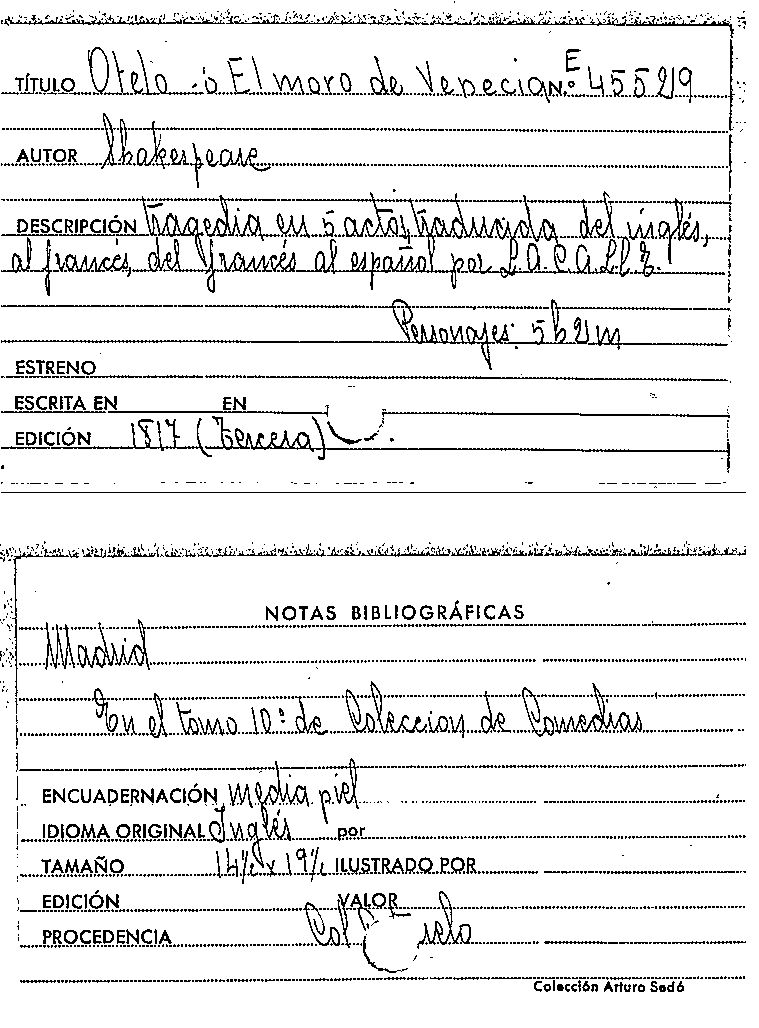 TÍTULO Otelo ó El moro de Venecia N.º E 45529
AUTOR Shakespeare
DESCRIPCIÓN tragedia en 5 actos, traducida del inglés,
al francés, del francés al español por L.A.C.A.L.L.E.
Personajes: 5h 2m
ESTRENO
ESCRITA EN EN
EDICIÓN 1817 (Tercera)
NOTAS BIBLIOGRÁFICAS
Madrid
En el tomo 10º de Coleccion de Comedias
ENCUADERNACIÓN media piel
IDIOMA ORIGINAL Inglés por
TAMAÑO 14½ x 19½ ILUSTRADO POR
EDICIÓN VALOR
PROCEDENCIA Col
Colección Arturo Sedó